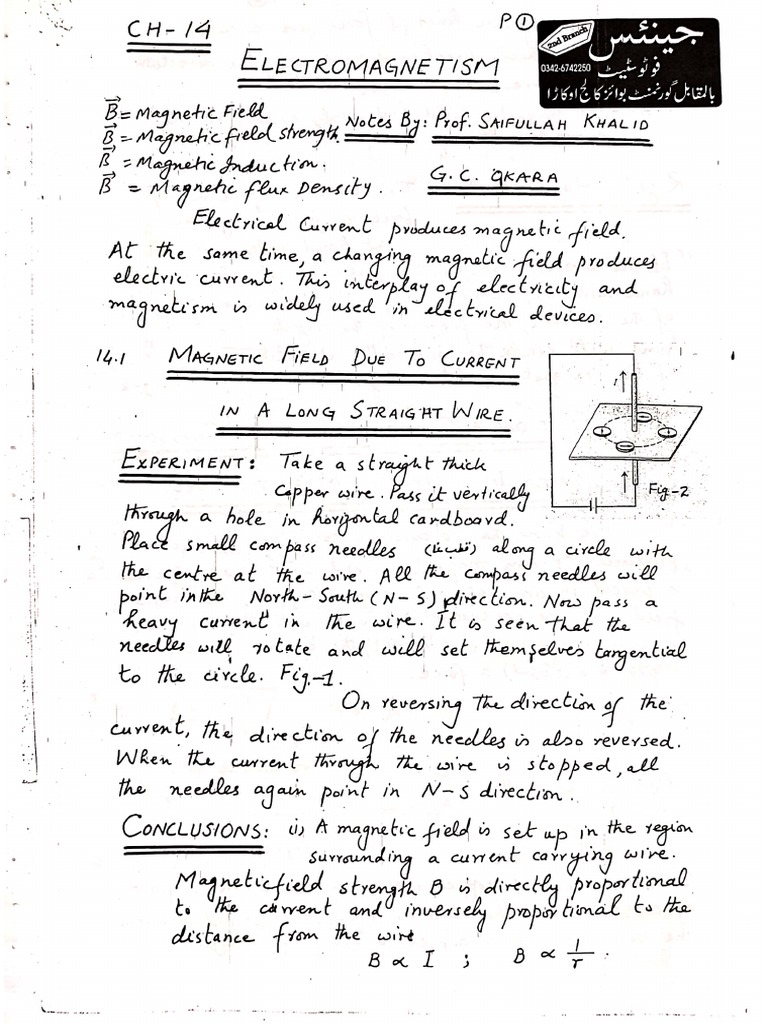 CH-14
P ①
ELECTROMAGNETISM
2nd Branch
جینئس
0342-6742250
فوٹو سٹیٹ
بالمقابل گورنمنٹ بوائز کالج اوکاڑا
B⃗ = Magnetic Field
B⃗ = Magnetic field strength.
B⃗ = Magnetic Induction.
B⃗ = Magnetic flux Density.
Notes By: Prof. SAIFULLAH KHALID
G.C. OKARA
Electrical Current produces magnetic field.
At the same time, a changing magnetic field produces
electric current. This interplay of electricity and
magnetism is widely used in electrical devices.
14.1 MAGNETIC FIELD DUE TO CURRENT
IN A LONG STRAIGHT WIRE.
Fig-2
EXPERIMENT: Take a straight thick
Copper wire. Pass it vertically
through a hole in horizontal cardboard.
Place small compass needles along a circle with
the centre at the wire. All the compass needles will
point in the North-South (N-S) direction. Now pass a
heavy current in the wire. It is seen that the
needles will rotate and will set themselves tangential
to the circle. Fig-1.
On reversing the direction of the
current, the direction of the needles is also reversed.
When the current through the wire is stopped, all
the needles again point in N-S direction.
CONCLUSIONS: (i) A magnetic field is set up in the region
surrounding a current carrying wire.
Magnetic field strength B is directly proportional
to the current and inversely proportional to the
distance from the wire
B ∝ I ; B ∝ 1/r .